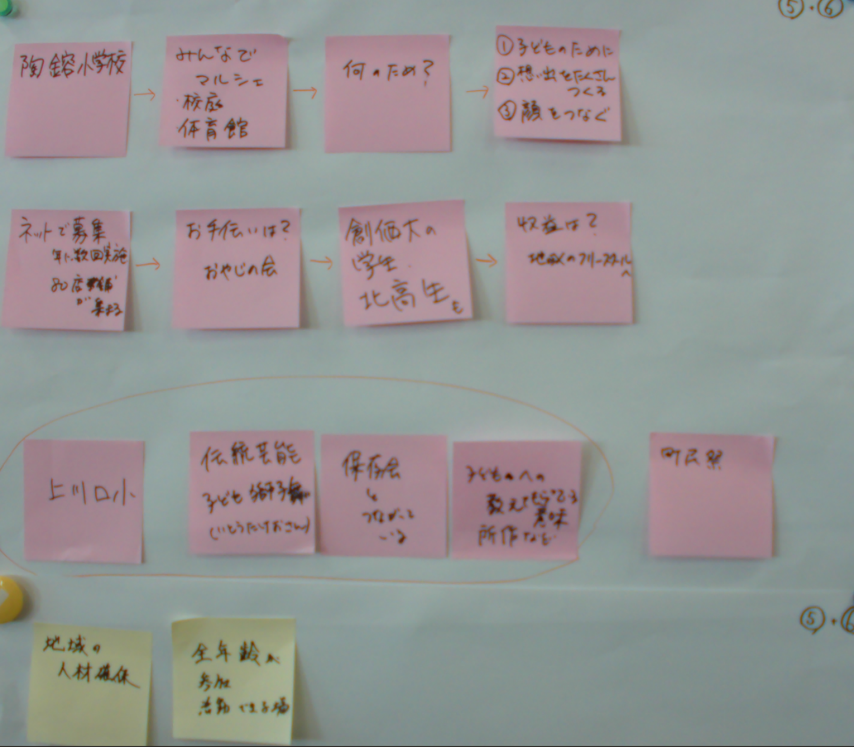 ⑤・⑥
陶鎔小学校
みんなで
マルシェ
・校庭
体育館
何のため?
①子どものために
②想い出をたくさん
つくる
③顔をつなぐ
ネットで募集
年に数回実施
80店舗
が
集まる
お手伝いは?
おやじの会
創価大の
学生
北高生も
収益は?
地域のフリースクールへ
上川口小
伝統芸能
子ども獅子舞
(いとうたけおさん)
保存会
と
つながって
いる
子どもへの
教え
意味
所作など
町民祭
⑤・
地域の
人材確保
全年齢が
参加
活動できる場